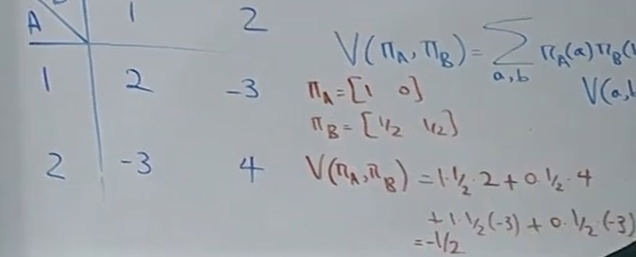 A 1 2
1 2 -3
2 -3 4
V(π_A, π_B) = Σ_{a,b} π_A(a) π_B(
V(a,
π_A = [1 0]
π_B = [1/2 1/2]
V(π_A, π_B) = 1·1/2·2 + 0·1/2·4
+ 1·1/2(-3) + 0·1/2·(-3)
= -1/2